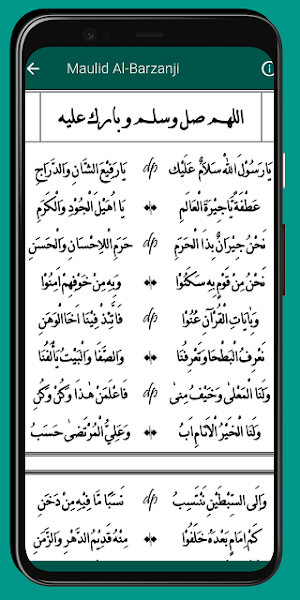 Maulid Al-Barzanji
اللهم صل وسلم وبارك عليه
يَا رَسُوْلَ اللهْ سَلَامٌ عَلَيْكْ يَا رَفِيْعَ الشَّانِ وَالدَّرَجِ
عَطْفَةً يَّاجِيْرَةَ الْعَالَمِ يَا اُهَيْلَ الْجُوْدِ وَالْكَرَمِ
نَحْنُ جِيْرَانٌ بِذَا الْحَرَمِ حَرَمِ اللْاِحْسَانِ وَالْحَسَنِ
نَحْنُ مِنْ قَوْمٍ بِهِ سَكَنُوْا وَبِهِ مِنْ خَوْفِهِمْ اَمِنُوْا
وَبِاٰيَاتِ الْقُرْاٰنِ عُنُوْا فَاتَّئِدْ فِيْنَا اَخَا الْوَهَنِ
نَعْرِفُ الْبَطْحَا وَتَعْرِفُنَا وَالصَّفَا وَالْبَيْتُ يَأْلَفُنَا
وَلَنَا الْمَعْلٰى وَخَيْفُ مِنٰى فَاعْلَمَنْ هٰذَا وَكُنْ وَكُنِ
وَلَنَا الْخَيْرُ الْاَنَامِ اَبُ وَعَلِيُّ الْمُرْتَضٰى حَسَبُ
وَاِلَى السِّبْطَيْنِ نَنْتَسِبُ نَسَبًا مَّا فِيْهِ مِنْ دَخَنِ
كَمْ اِمَامٍ بَعْدَهُ خَلَفُوْا مِنْهُ قَدِيْمُ الدَّهْرِ وَالزَّمَنِ